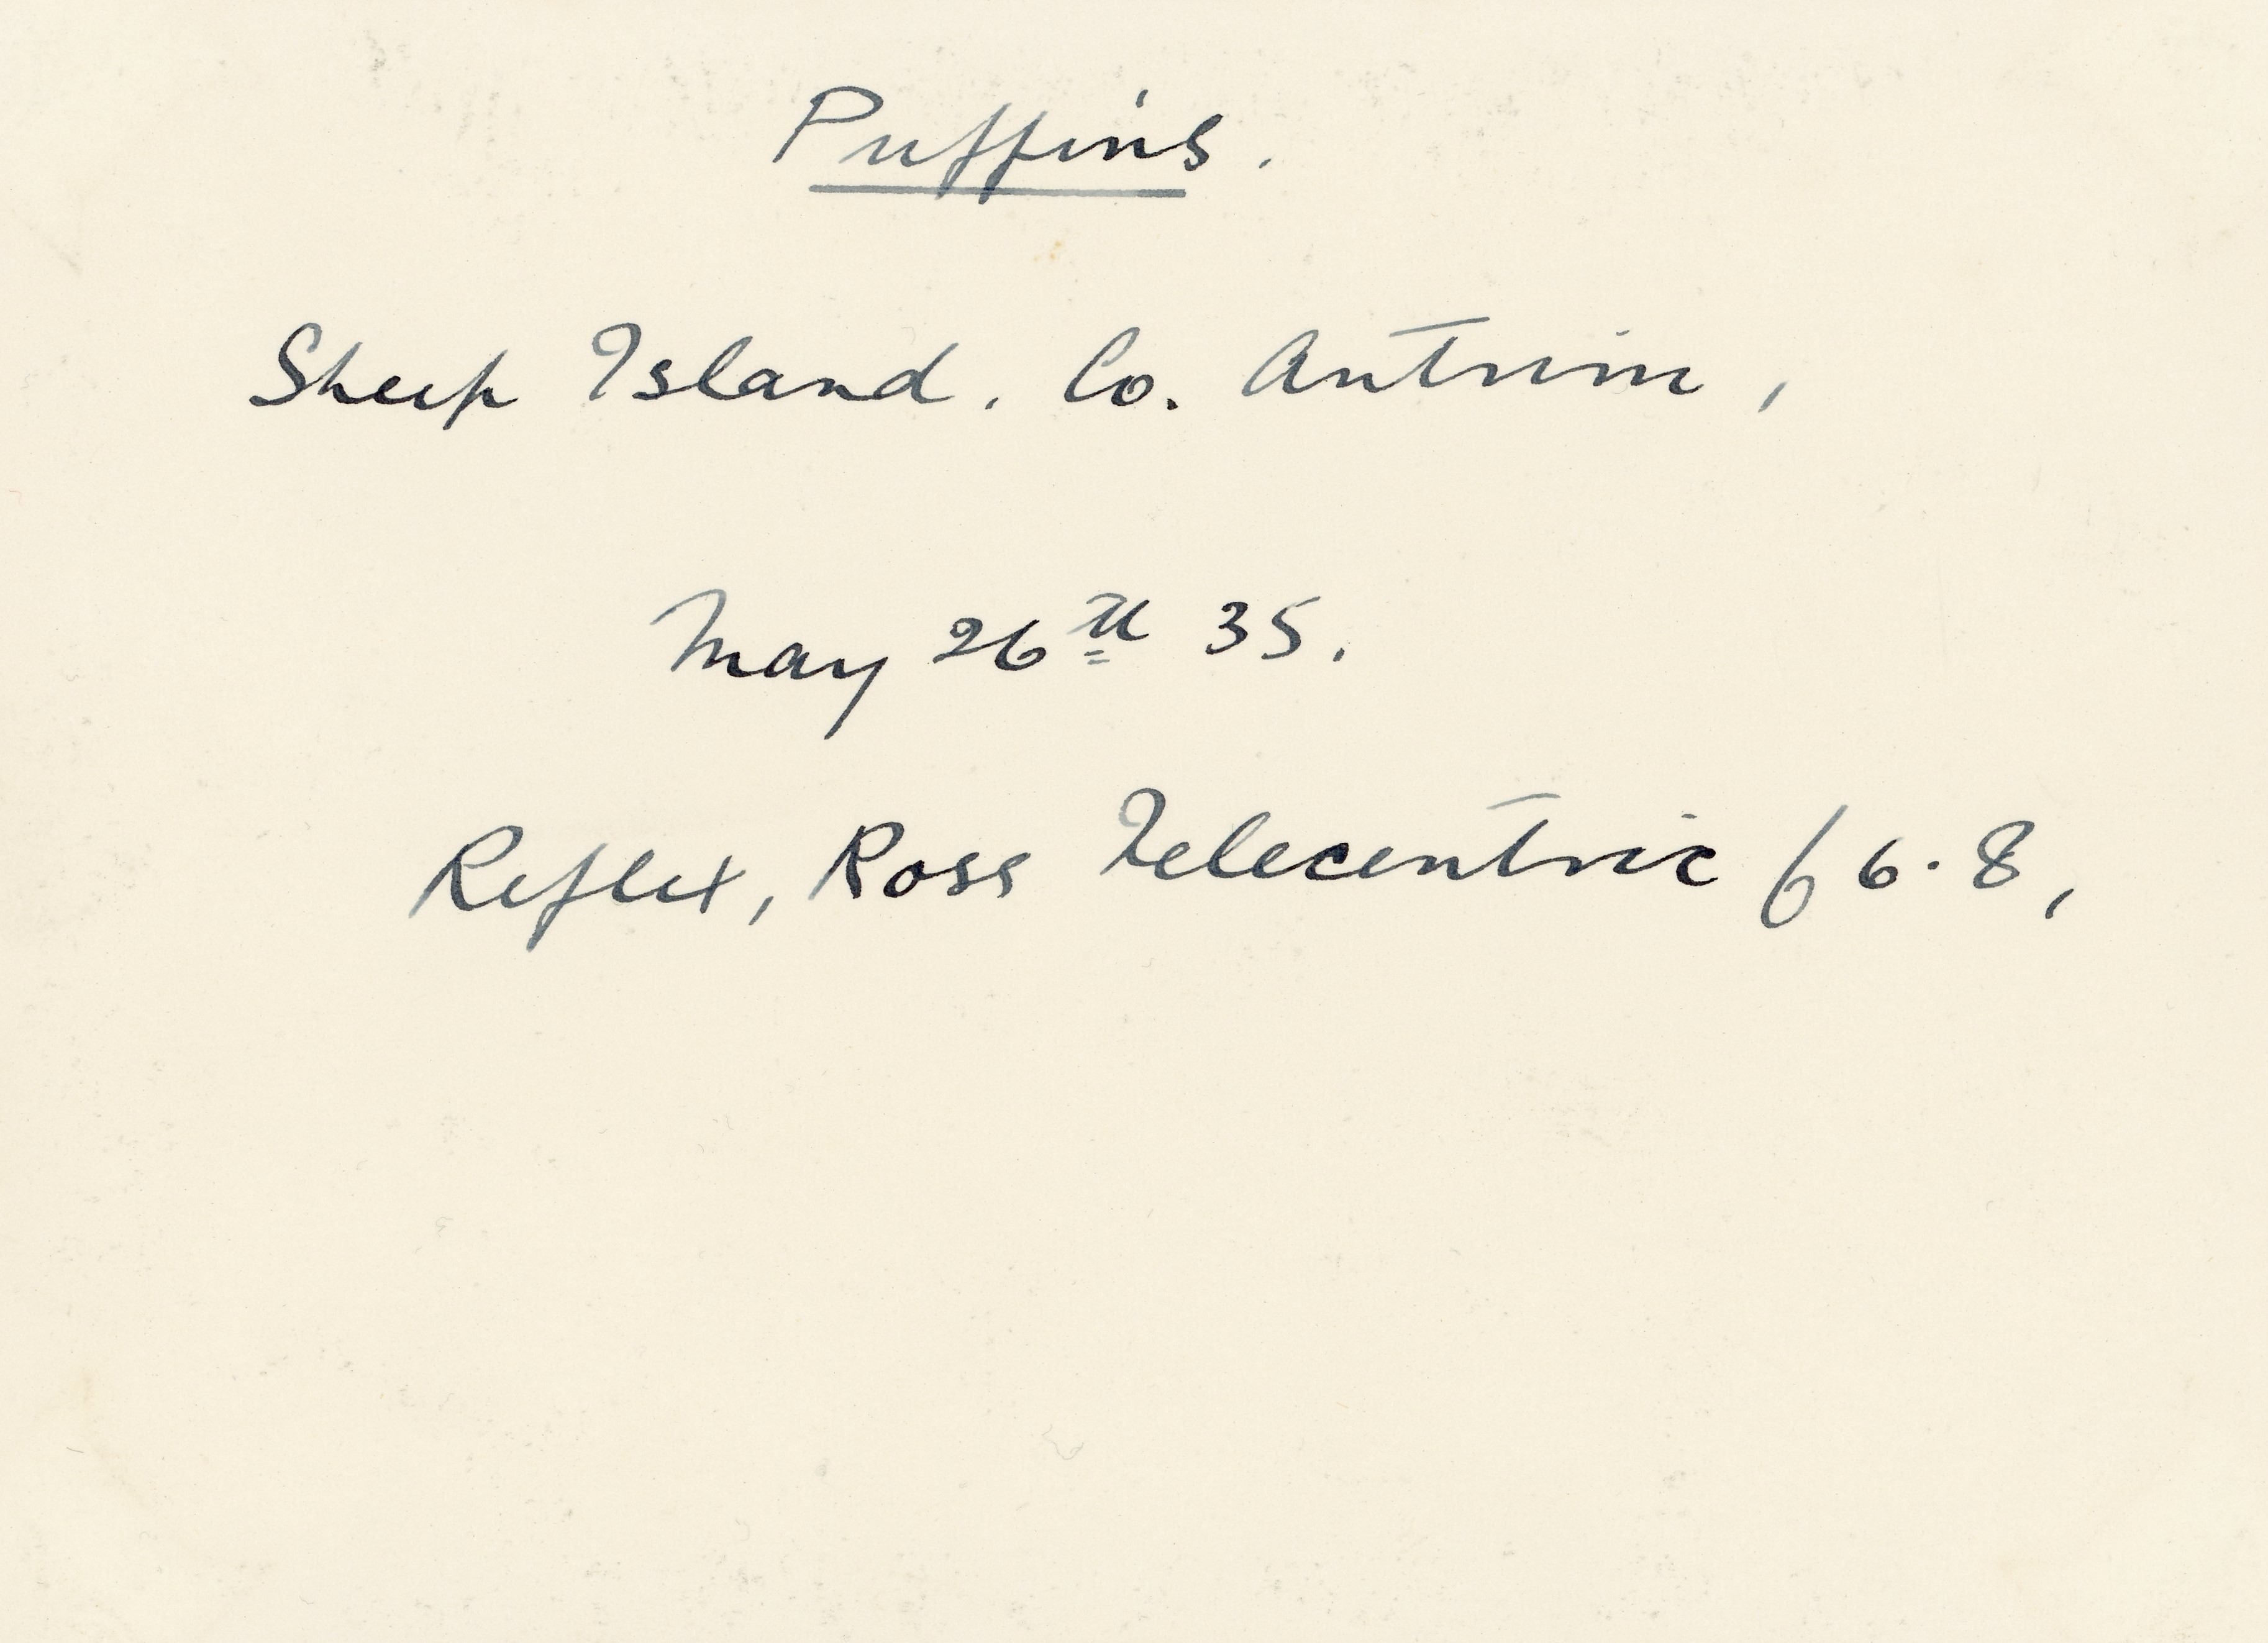 Puffins.
Sheep Island. Co. Antrim,
May 26th 35.
Reflex, Ross Telecentric f 6.8,